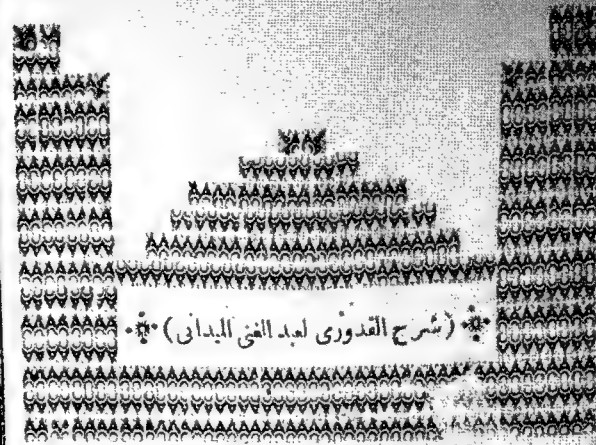 (شرح القدورى لعبد الغنى الميدانى)